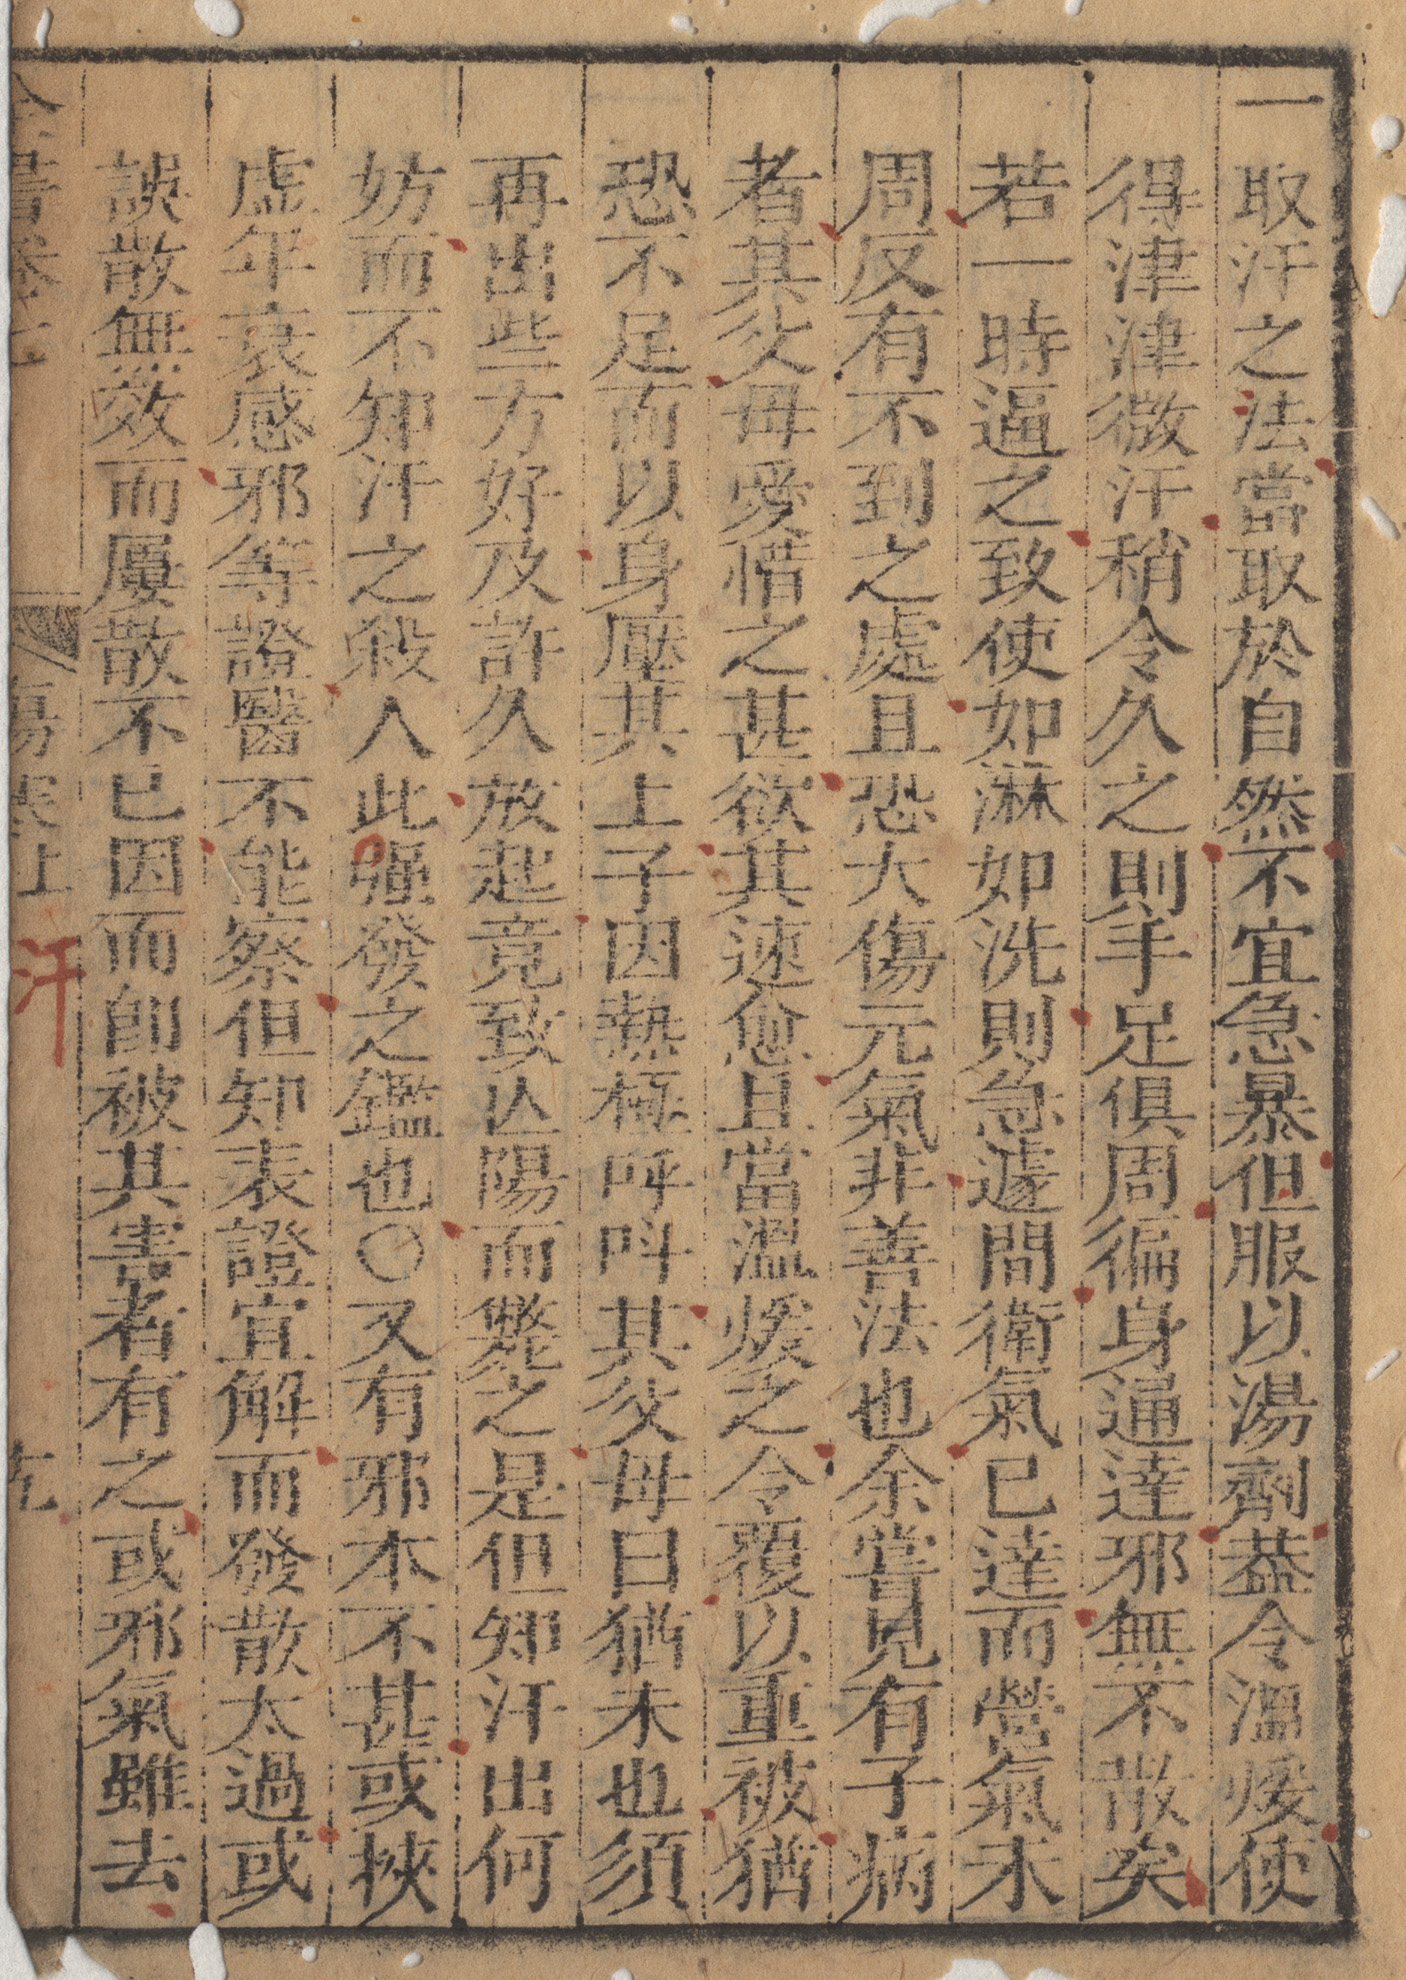 一取汗之法當取於自然不宜急暴但服以湯劑葢令溫煖使
得津津微汗稍令久之則手足俱周徧身通達邪無不散矣
若一時逼之致使如淋如洗則急遽間衛氣已達而營氣未
周反有不到之處且恐大傷元氣非善法也余嘗見有子病
者其父母愛惜之甚欲其速愈且當溫煖之令覆以重被猶
恐不足而以身壓其上子因熱極呼呌其父母曰猶未也須
再出些方好及許久放起竟致亾陽而斃之是但知汗出何
妨而不知汗之殺人此强發之鑑也○又有邪本不甚或挾
虛年衰感邪等證醫不能察但知表證宜解而發散太過或
誤散無效而屢散不已因而卽被其害者有之或邪氣雖去
全書卷七 傷寒上 汗